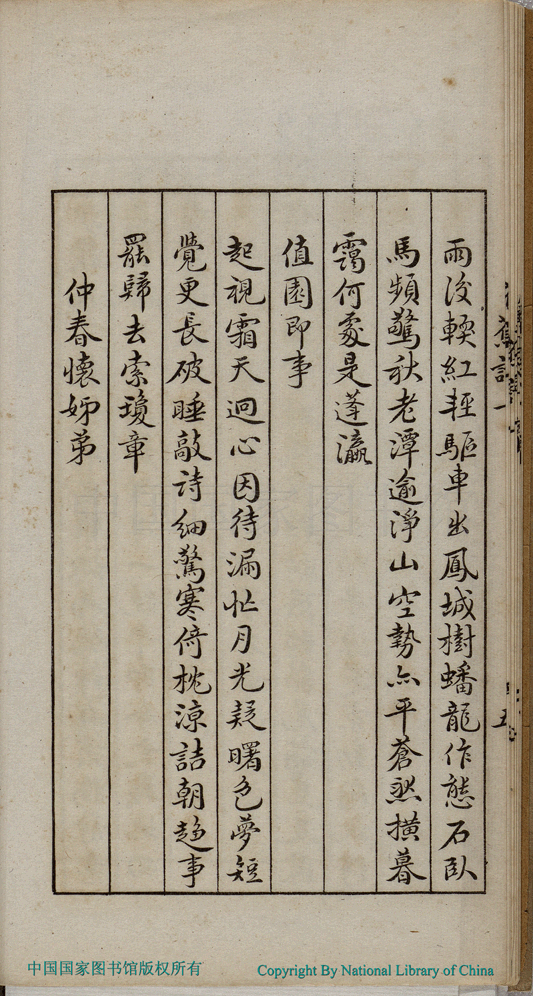 雨後輭紅輕驅車出鳳城樹蟠龍作態石臥
馬頻驚秋老潭逾淨山空勢亦平蒼然橫暮
靄何處是蓬瀛
值園即事
起視霜天迥心因待漏忙月光疑曙色夢短
覺更長破睡敲詩細驚寒倚枕涼詰朝趨事
罷歸去索瓊章
仲春懷姊弟
中国国家图书馆版权所有
Copyright By National Library of China